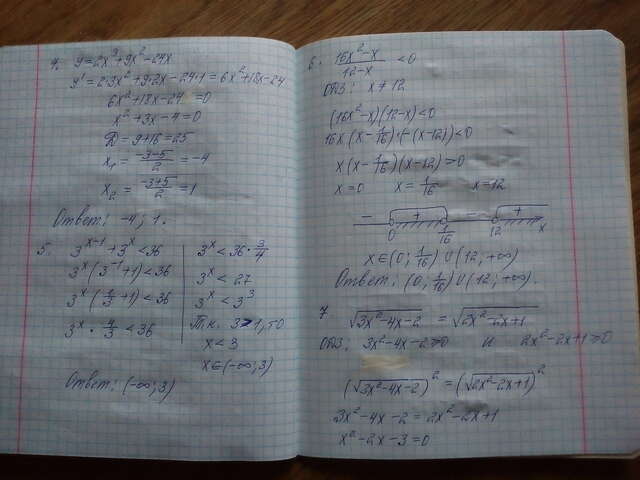 4. y=2x³+9x²-24x
y'=2·3x²+9·2x-24·1=6x²+18x-24
6x²+18x-24=0
x²+3x-4=0
D=9+16=25
x₁=(-3-5)/2=-4
x₂=(-3+5)/2=1
Ответ: -4; 1.
5. 3^(x-1)+3^x<36
3^x(3^(-1)+1)<36
3^x(1/3+1)<36
3^x·4/3<36
3^x<36·3/4
3^x<27
3^x<3³
Т.к. 3>1, то
x<3
x∈(-∞;3)
Ответ: (-∞;3)
6. (16x²-x)/(12-x)<0
ОДЗ: x≠12
(16x²-x)(12-x)<0
16x(x-1/16)·(-(x-12))<0
x(x-1/16)(x-12)>0
x=0 x=1/16 x=12
- + - +
0 1/16 12 x
x∈(0;1/16)∪(12;+∞)
Ответ: (0;1/16)∪(12;+∞).
7 √(3x²-4x-2) = √(2x²-2x+1)
ОДЗ: 3x²-4x-2≥0 и 2x²-2x+1≥0
(√(3x²-4x-2))²=(√(2x²-2x+1))²
3x²-4x-2=2x²-2x+1
x²-2x-3=0